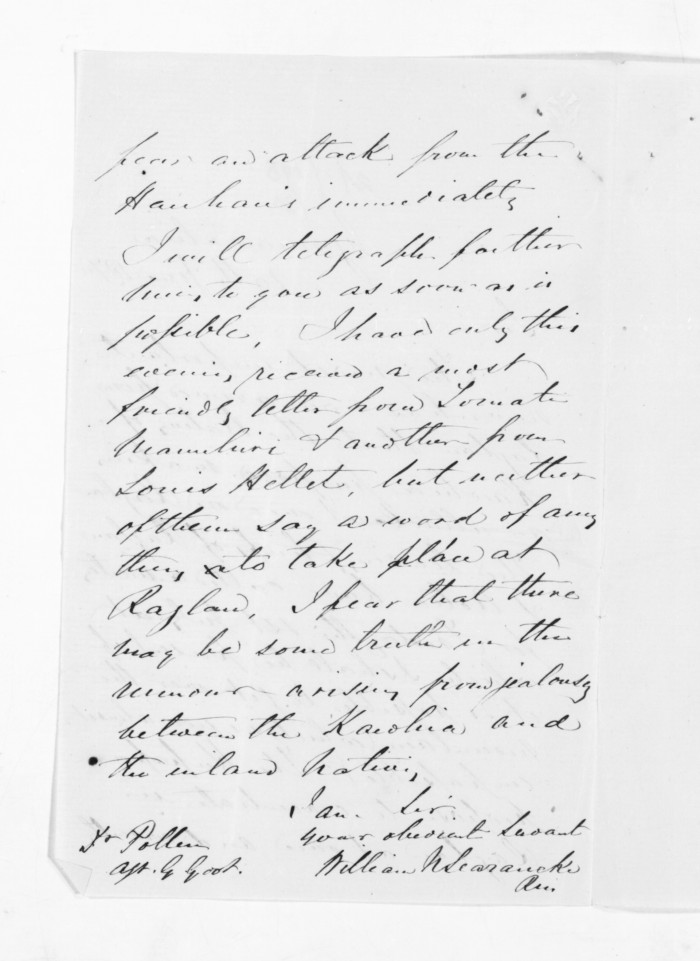 fear an attack from the
Hauhau's immediately
I will telegraph further
news to you as soon as is
possible, I have only this
evening received a most
friendly letter from Tomati
& another from
Louis Hettet, but neither
of them say a word of any
thing to take place at
Raglan, I fear that there
may be some truth in the
rumour arising from jealousy
between the Kawhia and
the inland natives,
I am Sir
your obedient Servant
William N Searancke
RM
Dr Pollen
Agt. G Govt.